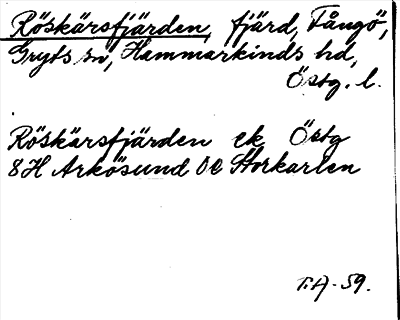 Röskärsfjärden, fjärd, Fångö,
Gryts sn, Hammarkinds hd,
Östg. l.
Röskärsfjärden ek Östg
8H Arkösund 0c Storkartan
T.A-59.